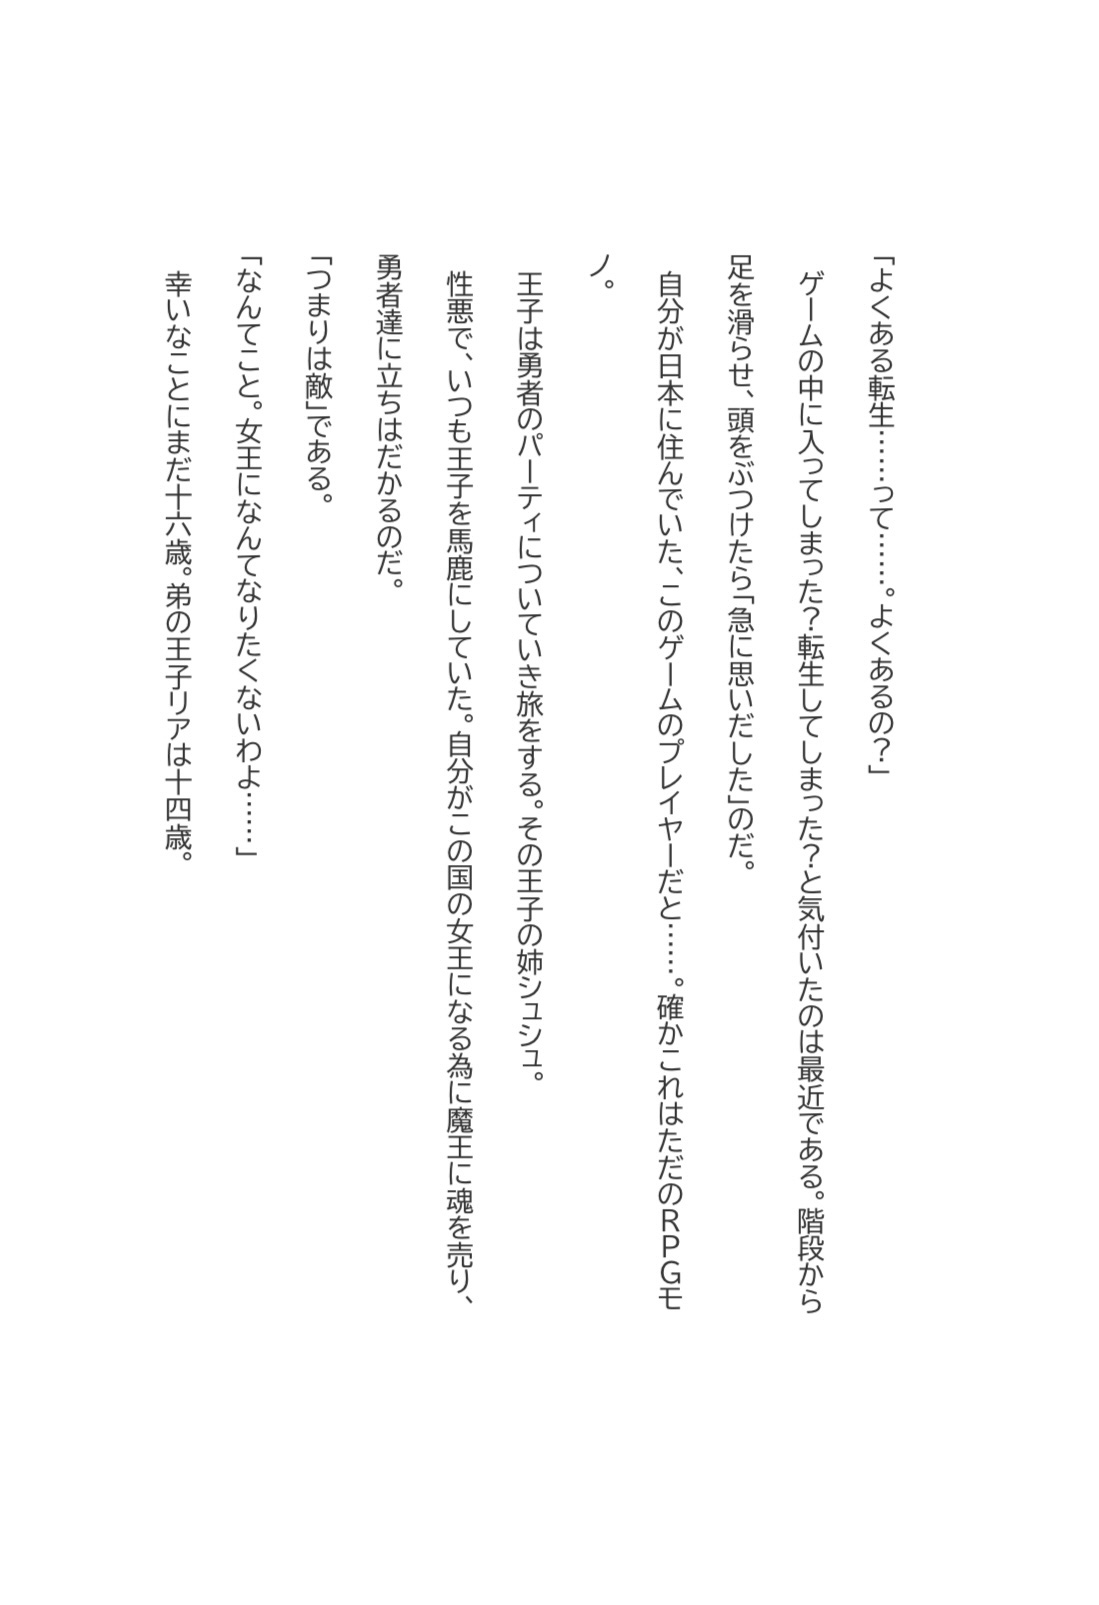 「よくある転生……って……。よくあるの？」
ゲームの中に入ってしまった？転生してしまった？と気付いたのは最近である。階段から
足を滑らせ、頭をぶつけたら「急に思いだした」のだ。
自分が日本に住んでいた、このゲームのプレイヤーだと……。確かこれはただのＲＰＧモ
ノ。
王子は勇者のパーティについていき旅をする。その王子の姉シュシュ。
性悪で、いつも王子を馬鹿にしていた。自分がこの国の女王になる為に魔王に魂を売り、
勇者達に立ちはだかるのだ。
「つまりは敵」である。
「なんてこと。女王になんてなりたくないわよ……」
幸いなことにまだ十六歳。弟の王子リアは十四歳。